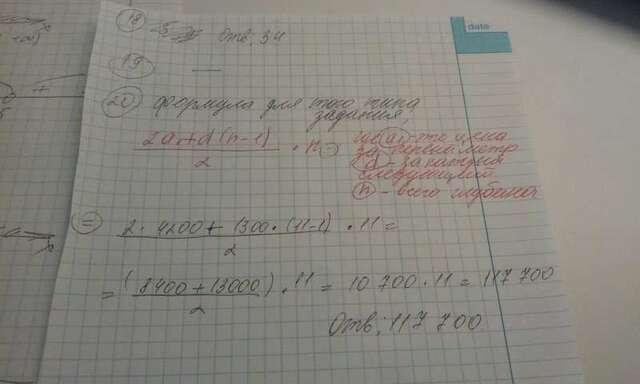 date
18 Отв: 34
19 —
20 формула для того типа
задания,
2a₁+d(n-1)
/2 · n =
где a₁ - это цена
за первый метр
d - за каждый
следующий
n - всего глубина
= 2·4200+1300·(11-1)
/2 · 11 =
= (8400+13000
/2) · 11 = 10 700 · 11 = 117 700
Отв: 117 700